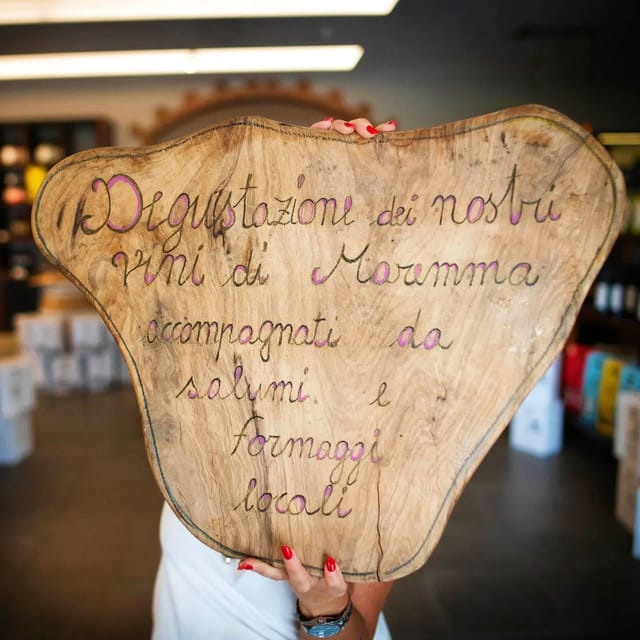 Degustazione dei nostri
vini di Maremma
accompagnati da
salumi e
formaggi
locali